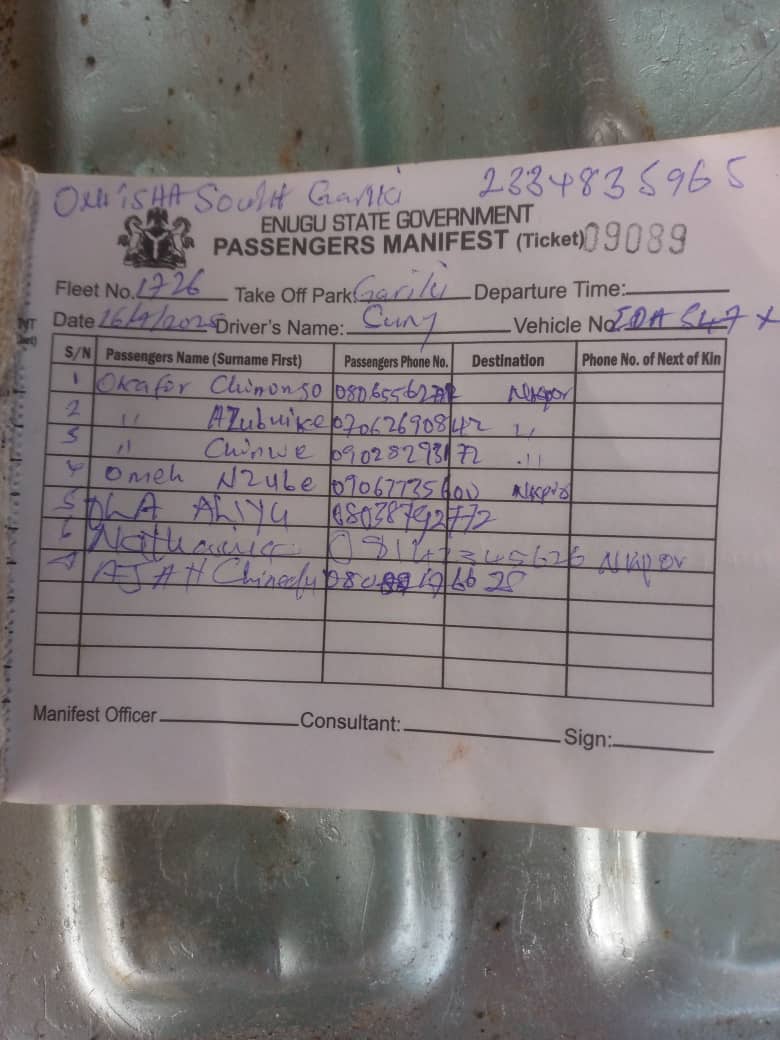 ONITSHA South Gariki 2334835965
ENUGU STATE GOVERNMENT
PASSENGERS MANIFEST (Ticket) 09089
Fleet No. 1726 Take Off Park: Gariki Departure Time:
Date 16/9/2025 Driver's Name: Vehicle No
S/N Passengers Name (Surname First) Passengers Phone No. Destination Phone No. of Next of Kin
1 Okafor Chinonso Nkpor
2 " Azubuike 07062690842 "
3 " Chinwe 09028293172 "
4 Omeh Nzube Nkpor
5 ALIYU 08038792772
6 Nkpor
7 AJAH Chinedu
Manifest Officer Consultant: Sign: